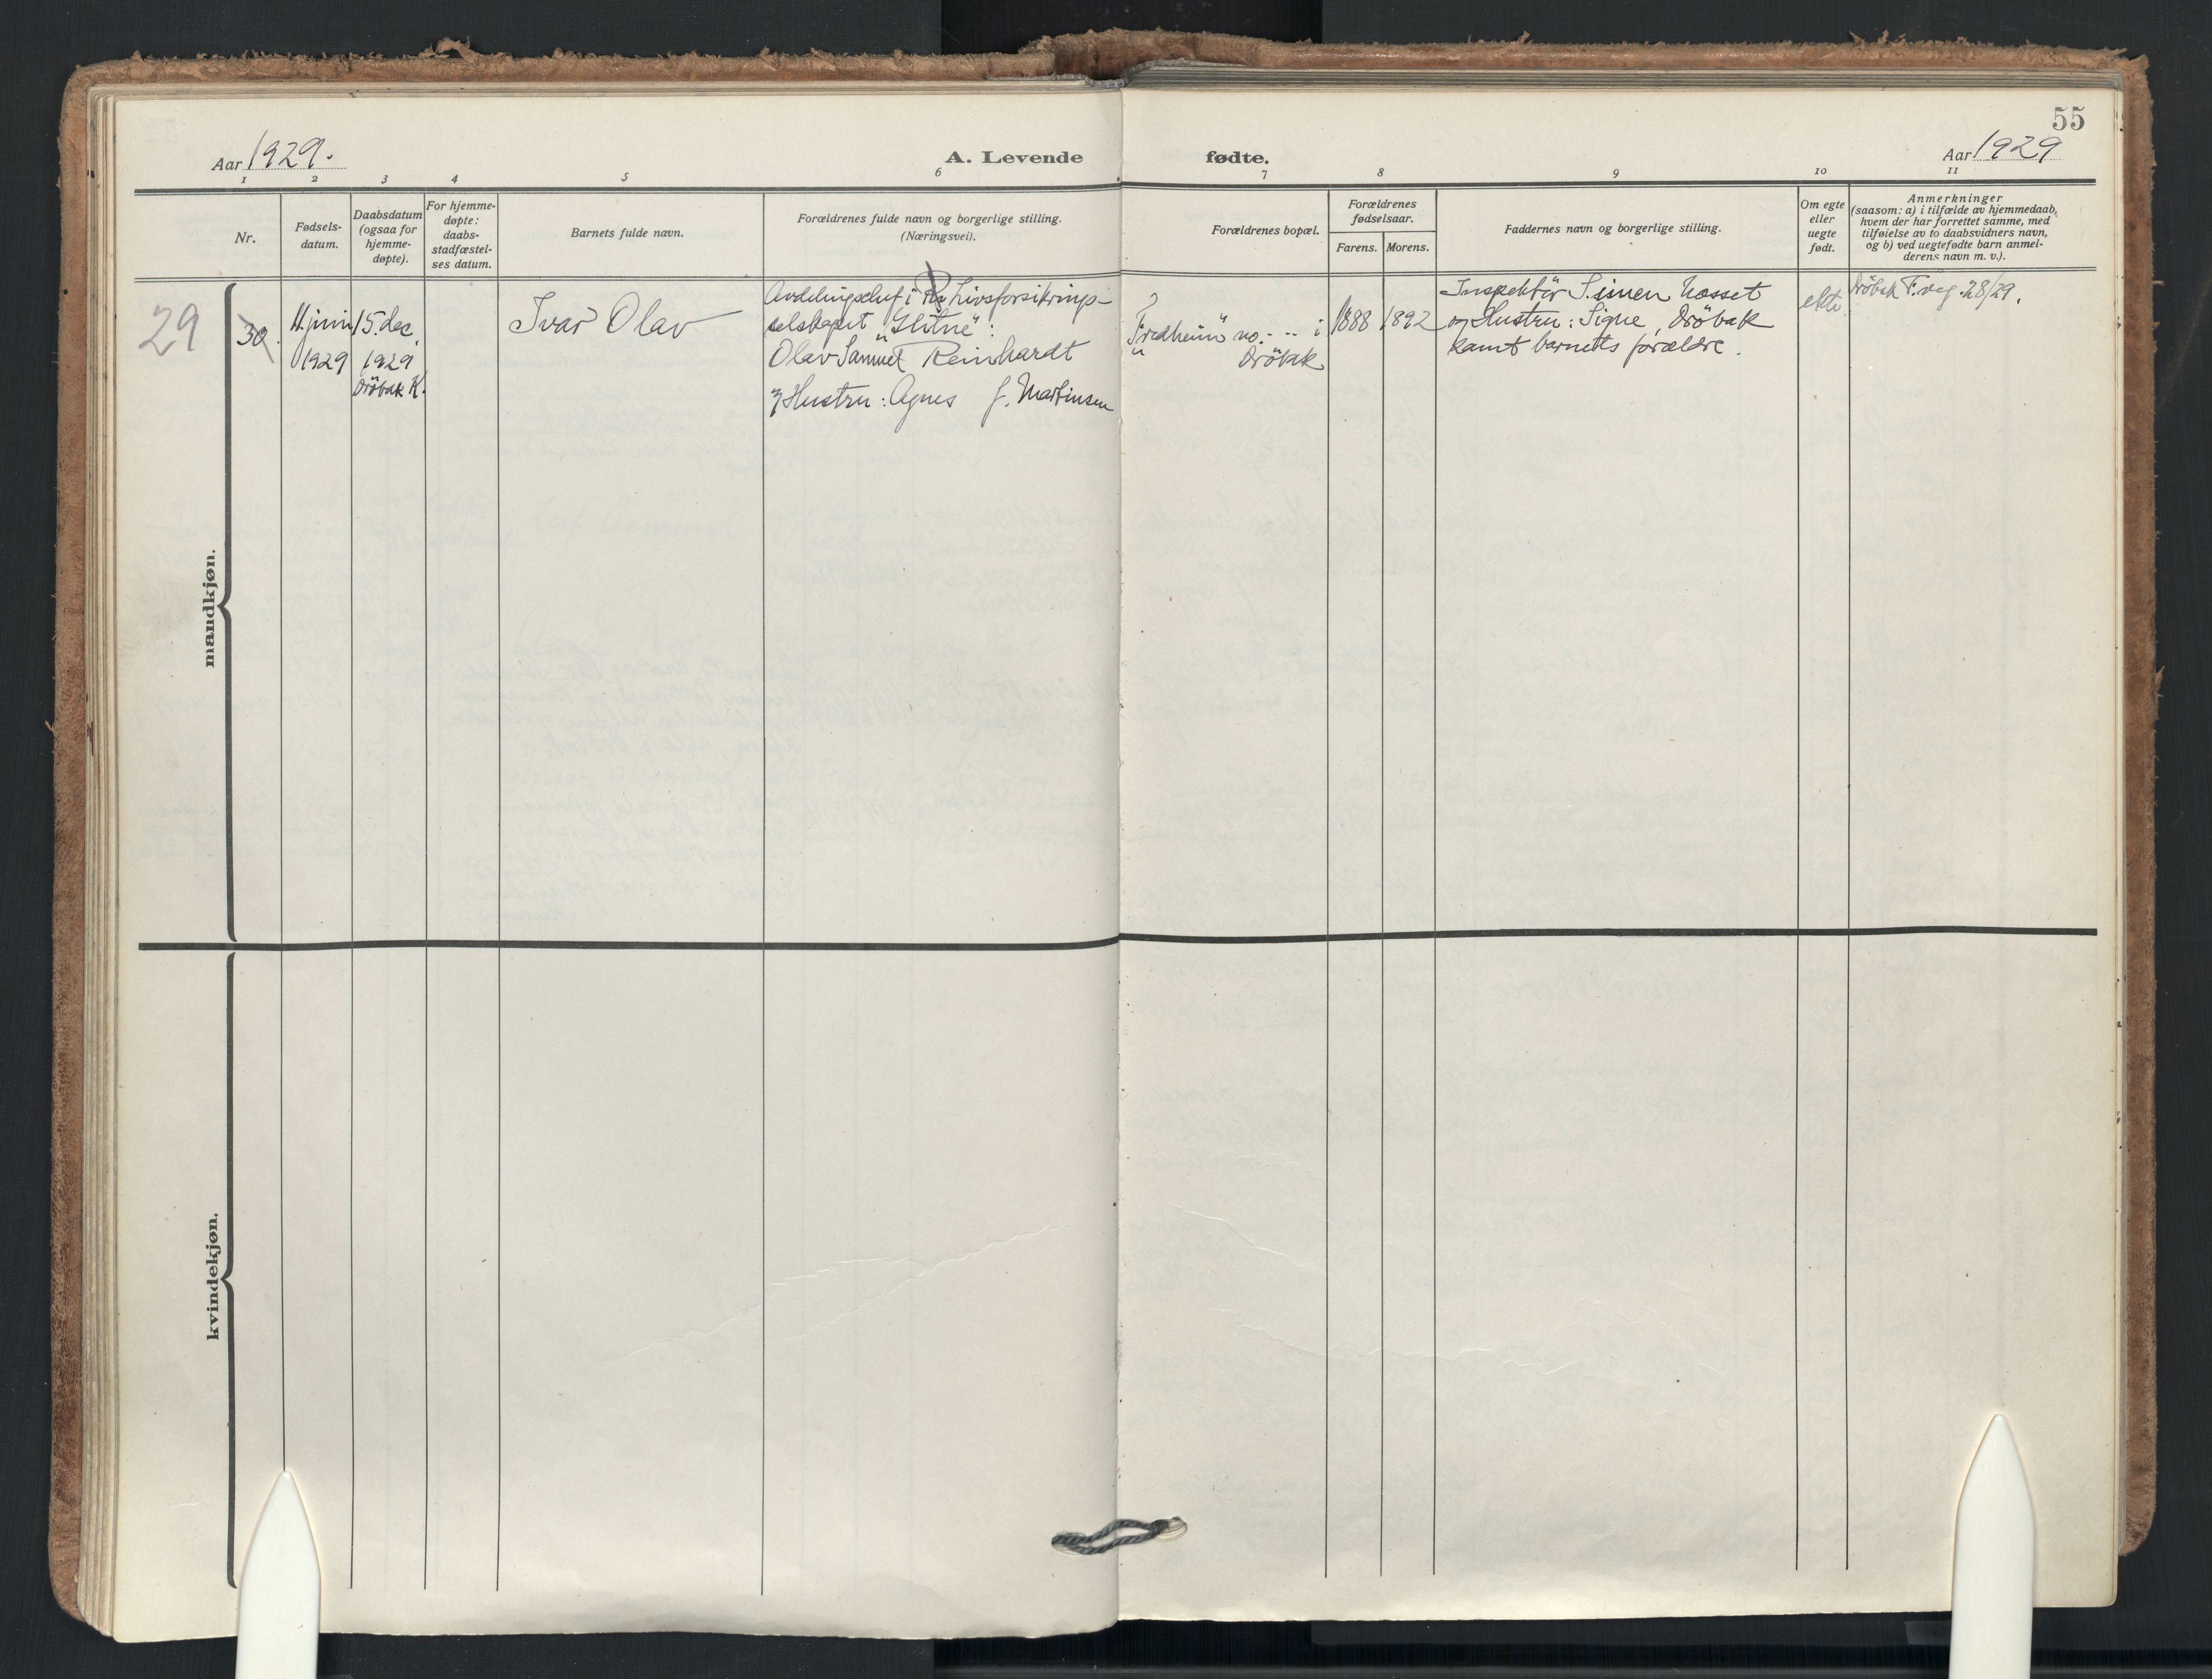 55
Aar 1929.
A. Levende
fødte.
Aar 1929
1 2 3 4 5 6 7 8 9 10 11
Nr.
Fødsels-
datum.
Daabsdatum
(ogsaa for
hjemme-
døpte).
For hjemme-
døpte:
daabs-
stadfæstel-
ses datum.
Barnets fulde navn.
Forældrenes fulde navn og borgerlige stilling.
(Næringsvei).
Forældrenes bopæl.
Forældrenes
fødselsaar.
Farens. Morens.
Faddernes navn og borgerlige stilling.
Om egte
eller
uegte
født.
Anmerkninger
(saasom: a) i tilfælde av hjemmedaab,
hvem der har forrettet samme, med
tilføielse av to daabsvidners navn,
og b) ved uegtefødte barn anmel-
derens navn m. v.).
mandkjøn.
29
30.
11. juni
1929
15. dec.
1929
Dröbak K.
Ivar Olav
Avdelingschef i Livsforsikrings-
selskapet "Glitne":
Olav Samuel Reinhardt
og Hustru: Agnes f. Martinsen
?
"Fredheim" no. - - i
Dröbak
1888
1892
Inspektör Simen Mosset
og Hustru: Signe, Dröbak
samt barnets forældre.
ekte.
Dröbak F. reg. 28/29.
kvindekjøn.